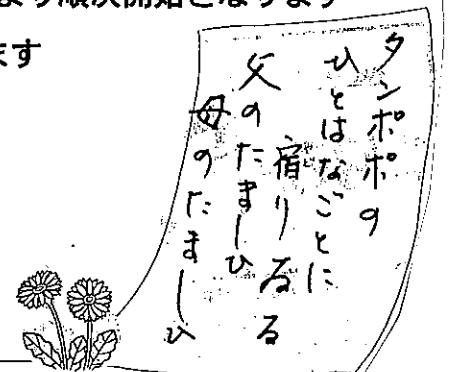 より順次開始となります
ます
タンポポの
ひとはなごとに
宿りゐる
父のたましひ
母のたましひ